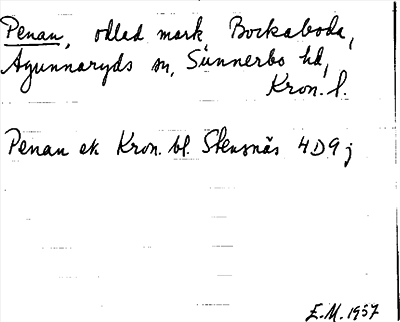 Penan, odlad mark Bockaboda,
Agunnaryds sn, Sunnerbo hd,
Kron. l.
Penan ek Kron. bl. Stensnäs 4D9j
E.M. 1957